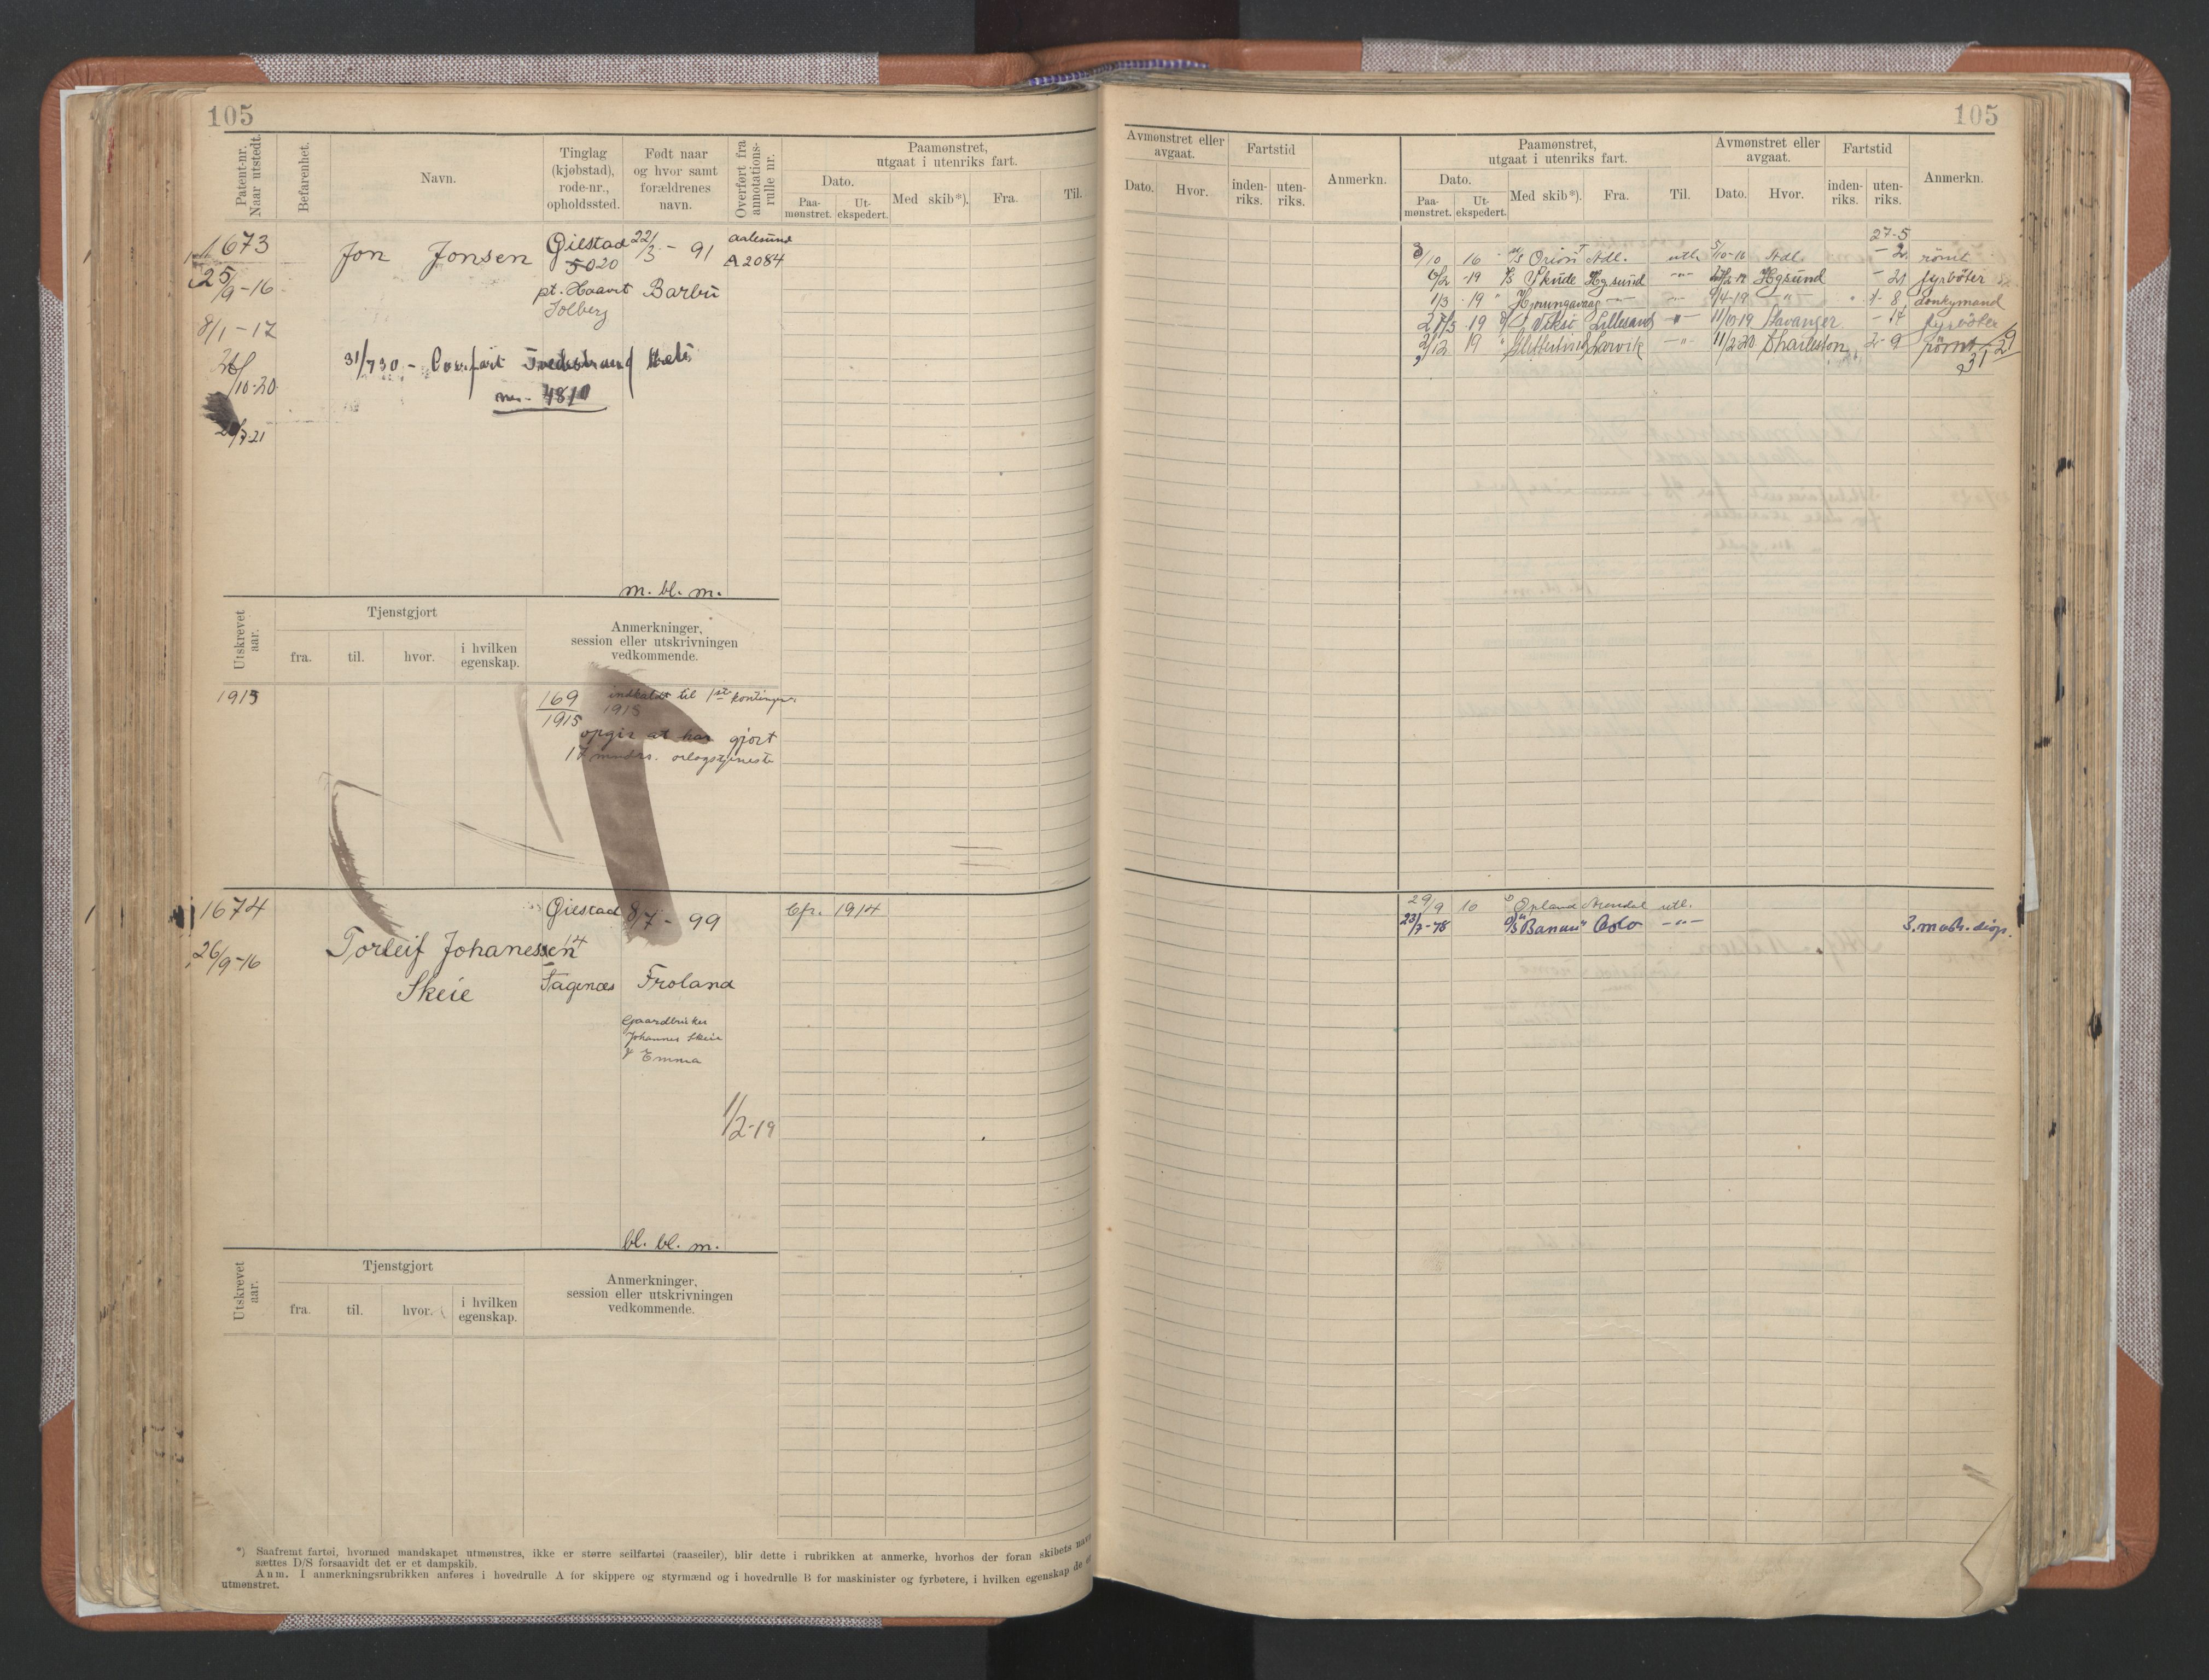 105
Patent-nr. Naar utstedt.
Befarenhet.
Navn.
Tinglag (kjøbstad), rode-nr., opholdssted.
Født naar og hvor samt forældrenes navn.
Overført fra annotations-rulle nr.
Paamønstret, utgaat i utenriks fart.
Dato.
Paa-mønstret.
Ut-ekspedert.
Med skib*).
Fra.
Til.
1673
25/9-16
8/1-17
/10-20
/7-21
Jon Jonsen
Øiestad
5020
pt. Haavet
Solberg
22/3 - 91
Barbu
Aalesund
A 2084
31/730 -
nr. 4810
m. bl. m.
Utskrevet aar.
Tjenstgjort
fra.
til.
hvor.
i hvilken egenskap.
Anmerkninger, session eller utskrivningen vedkommende.
1913
169
1915
indkaldt til 1ste kontingent
1915
opgir at har gjort
17 mndrs. orlogstjeneste
1674
26/9-16
Torleif Johanessen
Skeie
Øiestad
14
Fagenæs
8/7 - 99
Froland
Gaardbruker
Johannes Skeie
& Emma
1/2-19
Cfr. 1914
bl. bl. m.
Utskrevet aar.
Tjenstgjort
fra.
til.
hvor.
i hvilken egenskap.
Anmerkninger, session eller utskrivningen vedkommende.
*) Saafremt fartøi, hvormed mandskapet utmønstres, ikke er større seilfartøi (raaseiler), blir dette i rubrikken at anmerke, hvorhos der foran skibets navn
sættes D/S forsaavidt det er et dampskib.
Anm. I anmerkningsrubrikken anføres i hovedrulle A for skippere og styrmænd og i hovedrulle B for maskinister og fyrbøtere, i hvilken egenskap de er
utmønstret.
105
Avmønstret eller avgaat.
Dato.
Hvor.
Fartstid
inden-riks.
uten-riks.
Anmerkn.
Paamønstret, utgaat i utenriks fart.
Dato.
Paa-mønstret.
Ut-ekspedert.
Med skib*).
Fra.
Til.
Avmønstret eller avgaat.
Dato.
Hvor.
Fartstid
inden-riks.
uten-riks.
Anmerkn.
27-5
3/10 16 Orion Adl. utl. 5/10-16 Adl. - 2 römt
6/2 -19 Skude Hgsund -"- Hgsund fyrböter
1/3 -19 -"- -"- /4-19 -"- - 8 donkymand
-19 Viksö Lillesand -"- 11/10-19 Stavanger - 14 fyrböter
2/12 19 Larvik -"- 11/2-20 Charleston 2-9 römt
29/9 16 Opland Arendal utl.
23/7-48 D/S "Banan" Oslo -"- 3. mask. disp.